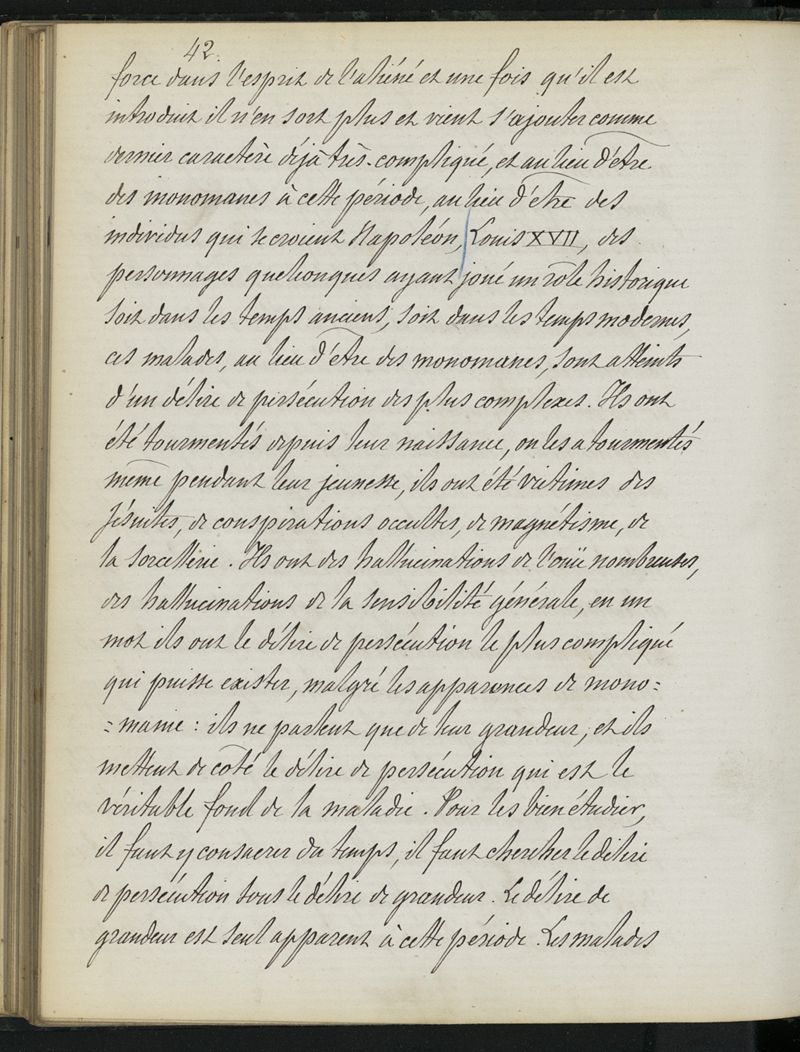 42.
force dans l'esprit de l'aliéné et une fois qu'il est
introduit il n'en sort plus et vient s'ajouter comme
dernier caractère déjà très-compliqué, et au lieu d'être
des monomanes à cette période, au lieu d'être des
individus qui se croient Napoléon, Louis XVII, des
personnages quelconques ayant joué un rôle historique
soit dans les temps anciens, soit dans les temps modernes,
ces malades, au lieu d'être des monomanes, sont atteints
d'un délire de persécution des plus complexes. Ils ont
été tourmentés depuis leur naissance, on les a tourmentés
même pendant leur jeunesse, ils ont été victimes des
Jésuites, de conspirations occultes, de magnétisme, de
la sorcellerie. Ils ont des hallucinations de l'ouïe nombreuses,
des hallucinations de la sensibilité générale, en un
mot ils ont le délire de persécution le plus compliqué
qui puisse exister, malgré les apparences de mono=
=manie : ils ne parlent que de leur grandeur, et ils
mettent de coté le délire de persécution qui est le
véritable fond de la maladie. Pour les bien étudier,
il faut y consacrer du temps, il faut chercher le délire
de persécution sous le délire de grandeur. Le délire de
grandeur est seul apparent à cette période. Les malades